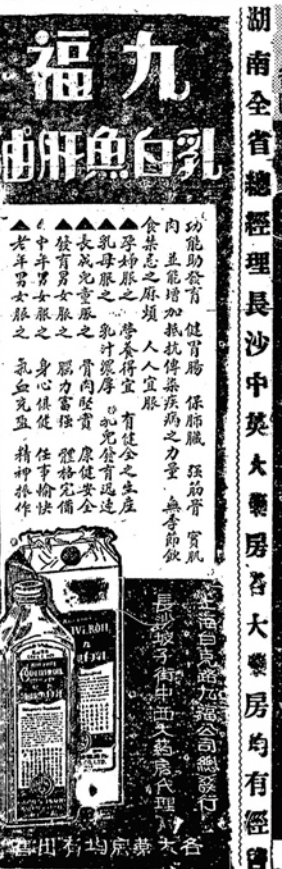 湖南全省總經理長沙中英大藥房各大藥房均有經售
九福
乳白魚肝油
功能助發育 健胃腸 保肺臟 強筋骨 實肌
肉 並能增加抵抗傳染疾病之力量 無季節飲
食禁忌之麻煩 人人宜服
▲孕婦服之 營養得宜 有健全之生産
▲乳母服之 乳汁濃厚 乳兒發育迅速
▲長成兒童服之 骨肉堅實 康健安全
▲發育男女服之 腦力富強 體格完備
▲中年男女服之 身心俱健 任事愉快
▲老年男女服之 氣血充盈 精神振作
上海白克路九福公司總發行
長沙坡子街中西大藥房代理
各大藥房均有出售